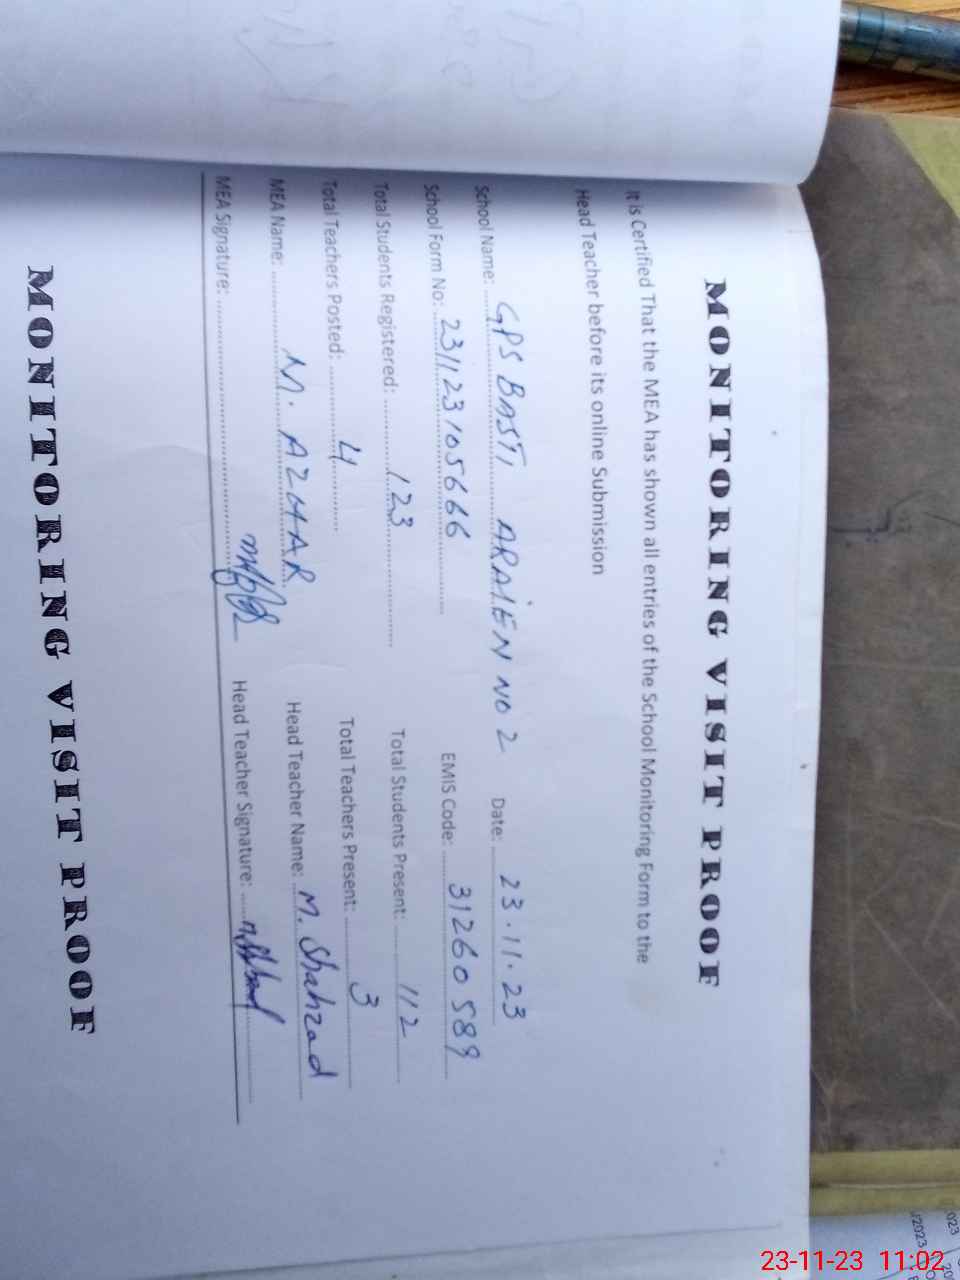 MONITORING VISIT PROOF
It is Certified That the MEA has shown all entries of the School Monitoring Form to the
Head Teacher before its online Submission
School Name: GPS BASTI ARAIEN NO 2 Date: 23.11.23
School Form No: 231123105666 EMIS Code: 31260589
Total Students Registered: 123 Total Students Present: 112
Total Teachers Posted: 4 Total Teachers Present: 3
MEA Name: M. AZHAR Head Teacher Name: M. Shahzad
MEA Signature: Head Teacher Signature:
MONITORING VISIT PROOF
23-11-23 11:02